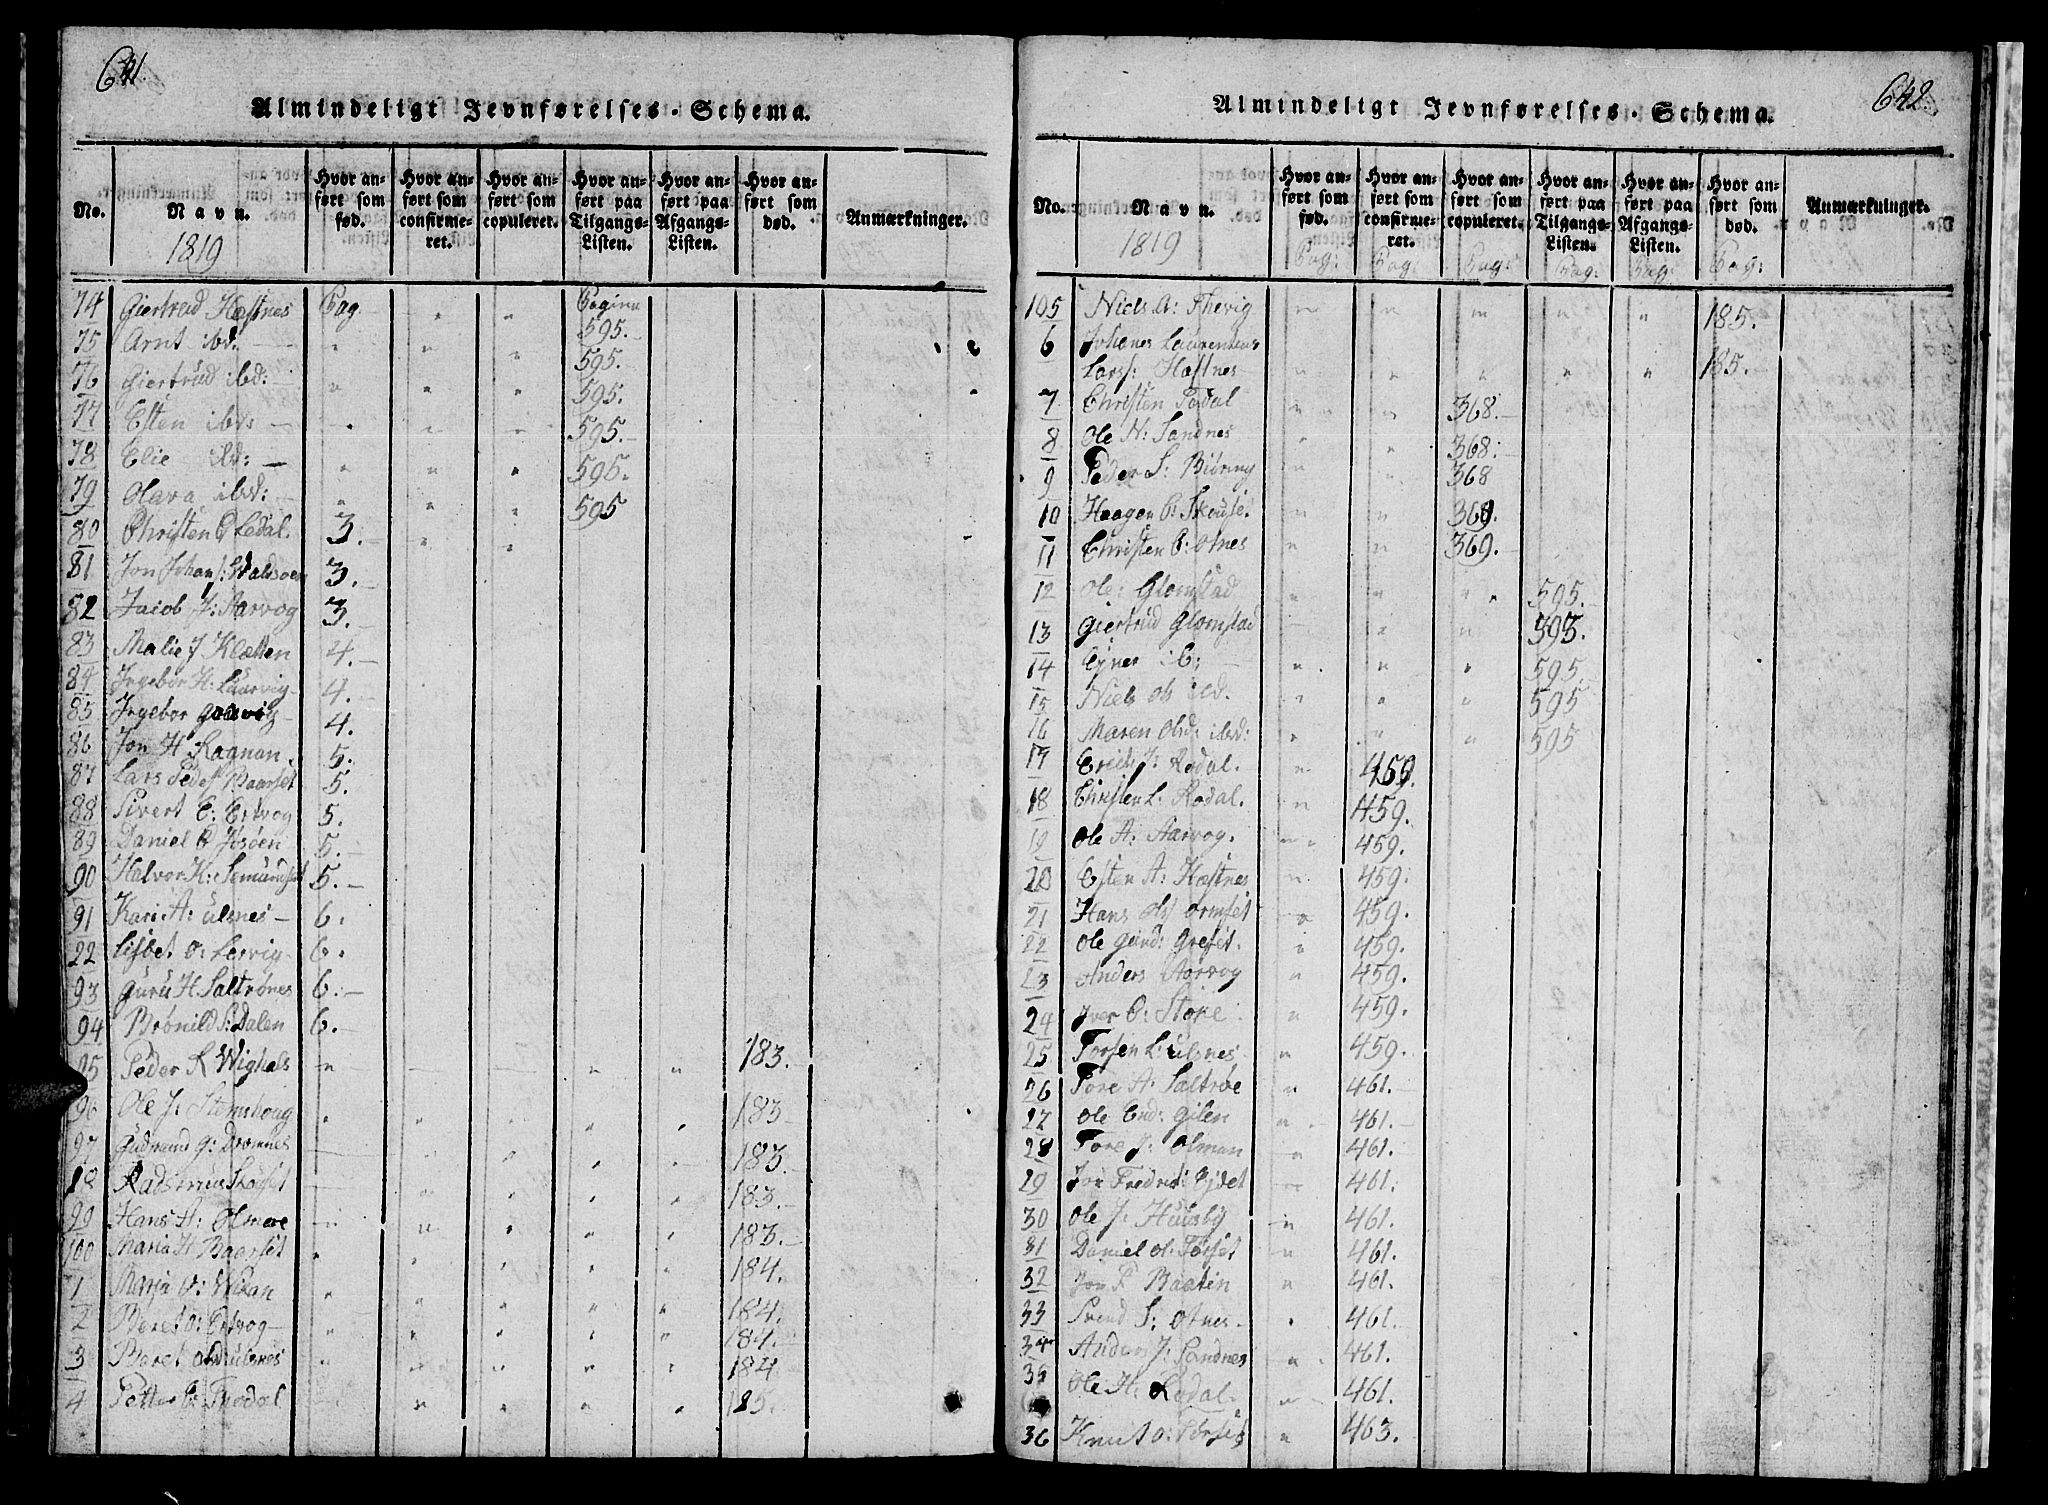 641.
Almindeligt Jevnførelses-Schema.
No. Navn. 1819 Hvor anført som fød. Hvor anført som confirmeret. Hvor anført som copuleret. Hvor anført paa Tilgangs-Listen. Hvor anført paa Afgangs-Listen. Hvor anført som død. Anmærkninger.
74 Giertrud Hæstnes Pag " " Pagina 595.
75 Arnt ibd. " " " 595.
76 Giertrud ibd: " " " 595.
77 Esten ibd " " " 595.
78 Elie ibd: " " " 595.
79 Olava ibd: " " " 595
80 Christen Ledal. 3. " "
81 Jon Johans: 3.
82 Jacob J: Aarvog 3.
83 Malie J Kletten 4.
84 Ingebor H: Laurvig 4.
85 Ingebor 4.
86 Jon H Ragnan 5.
87 Lars Peds Baarset 5.
88 Sivert E: Ertvog 5.
89 Daniel Jøsøen 5.
90 Halvor K: Semundset 5.
91 Kari A: Ulsnes 6.
22 Lisbet O: Lervig 6.
93 Guru H Saltrønes 6.
94 Brønild S: Dalen 6.
95 Peder K Wighals " " " 183.
96 Ole J: Stemshoug " " " " " 183
97 Gudmund G: Dromnes " " " 183.
98 Radsmus Skaset " " " " 183.
99 Hans H: Olmoe " " " " " 183.
100 Maria H Baarset " " " " " 184.
1 Maria O: Wikan " " " " " 184.
2 Beret O: Ertvog " " " 184.
3 Baret Ulsnes " " " " " 184
4 Petter E: Thodal " " " " 185.
642.
Almindeligt Jevnførelses-Schema.
No. Navn. 1819 Hvor anført som fød. Pag: Hvor anført som confirmeret. Pag: Hvor anført som copuleret. Pag: Hvor anført paa Tilgangs-Listen. Pag: Hvor anført paa Afgangs-Listen. Pag: Hvor anført som død. Pag: Anmærkninger.
105 Niels A: Thevig " " " " " 185.
6 Johanes Laurentius
Lars: Hæstnes " " " " " 185.
7 Christen Tødal " " 368.
8 Ole N: Sandnes " " 368.
9 Peder S: Biøring " " 368
10 Haagen E: Skeuset. " " 369.
11 Christen E: Otnes " " 369.
12 Ole: Glomstad " " " 595.
13 Giertrud Glomstad " " 595.
14 ib: " " " 595.
15 Niels Ols ibd. " " " 595
16 Maren Olsd: ibd: " " " 595
17 Erich J: Rodal. " 459.
18 Christen L: Rodal. " 459.
19 Ole A: Aarvog. " 459.
20 Esten A: Hæstnes " 459.
21 Hans Ols Ormset " 459.
22 Ole Gund: Greset. " 459.
23 Anders Aarvog " 459.
24 Iver O: Store " 459.
25 Torsen L: Ulsnes " 459.
26 Tore A: Saltrøe " 461.
27 Ole End: Gilen " 461.
28 Tore J: Olman " 461.
29 Jon Fredrs: " 461.
30 Ole J: Huusby " 461.
31 Daniel O: Torset " 461.
32 Jon P Baaten " 461.
33 Svend S: Otnes. " 461.
34 Anders J: Sandnes " 461.
35 Ole H: Rodal " 461.
36 Knut O: Torset " 463.